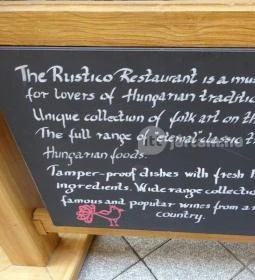 The Rustico Restaurant is a mu
for lovers of Hungarian traditio
Unique collection of folk art on th
The full range of "eternal" classic t
Hungarian foods.
Tamper-proof dishes with fresh H
ingredients. Wide range collectio
famous and popular wines from ar
country.